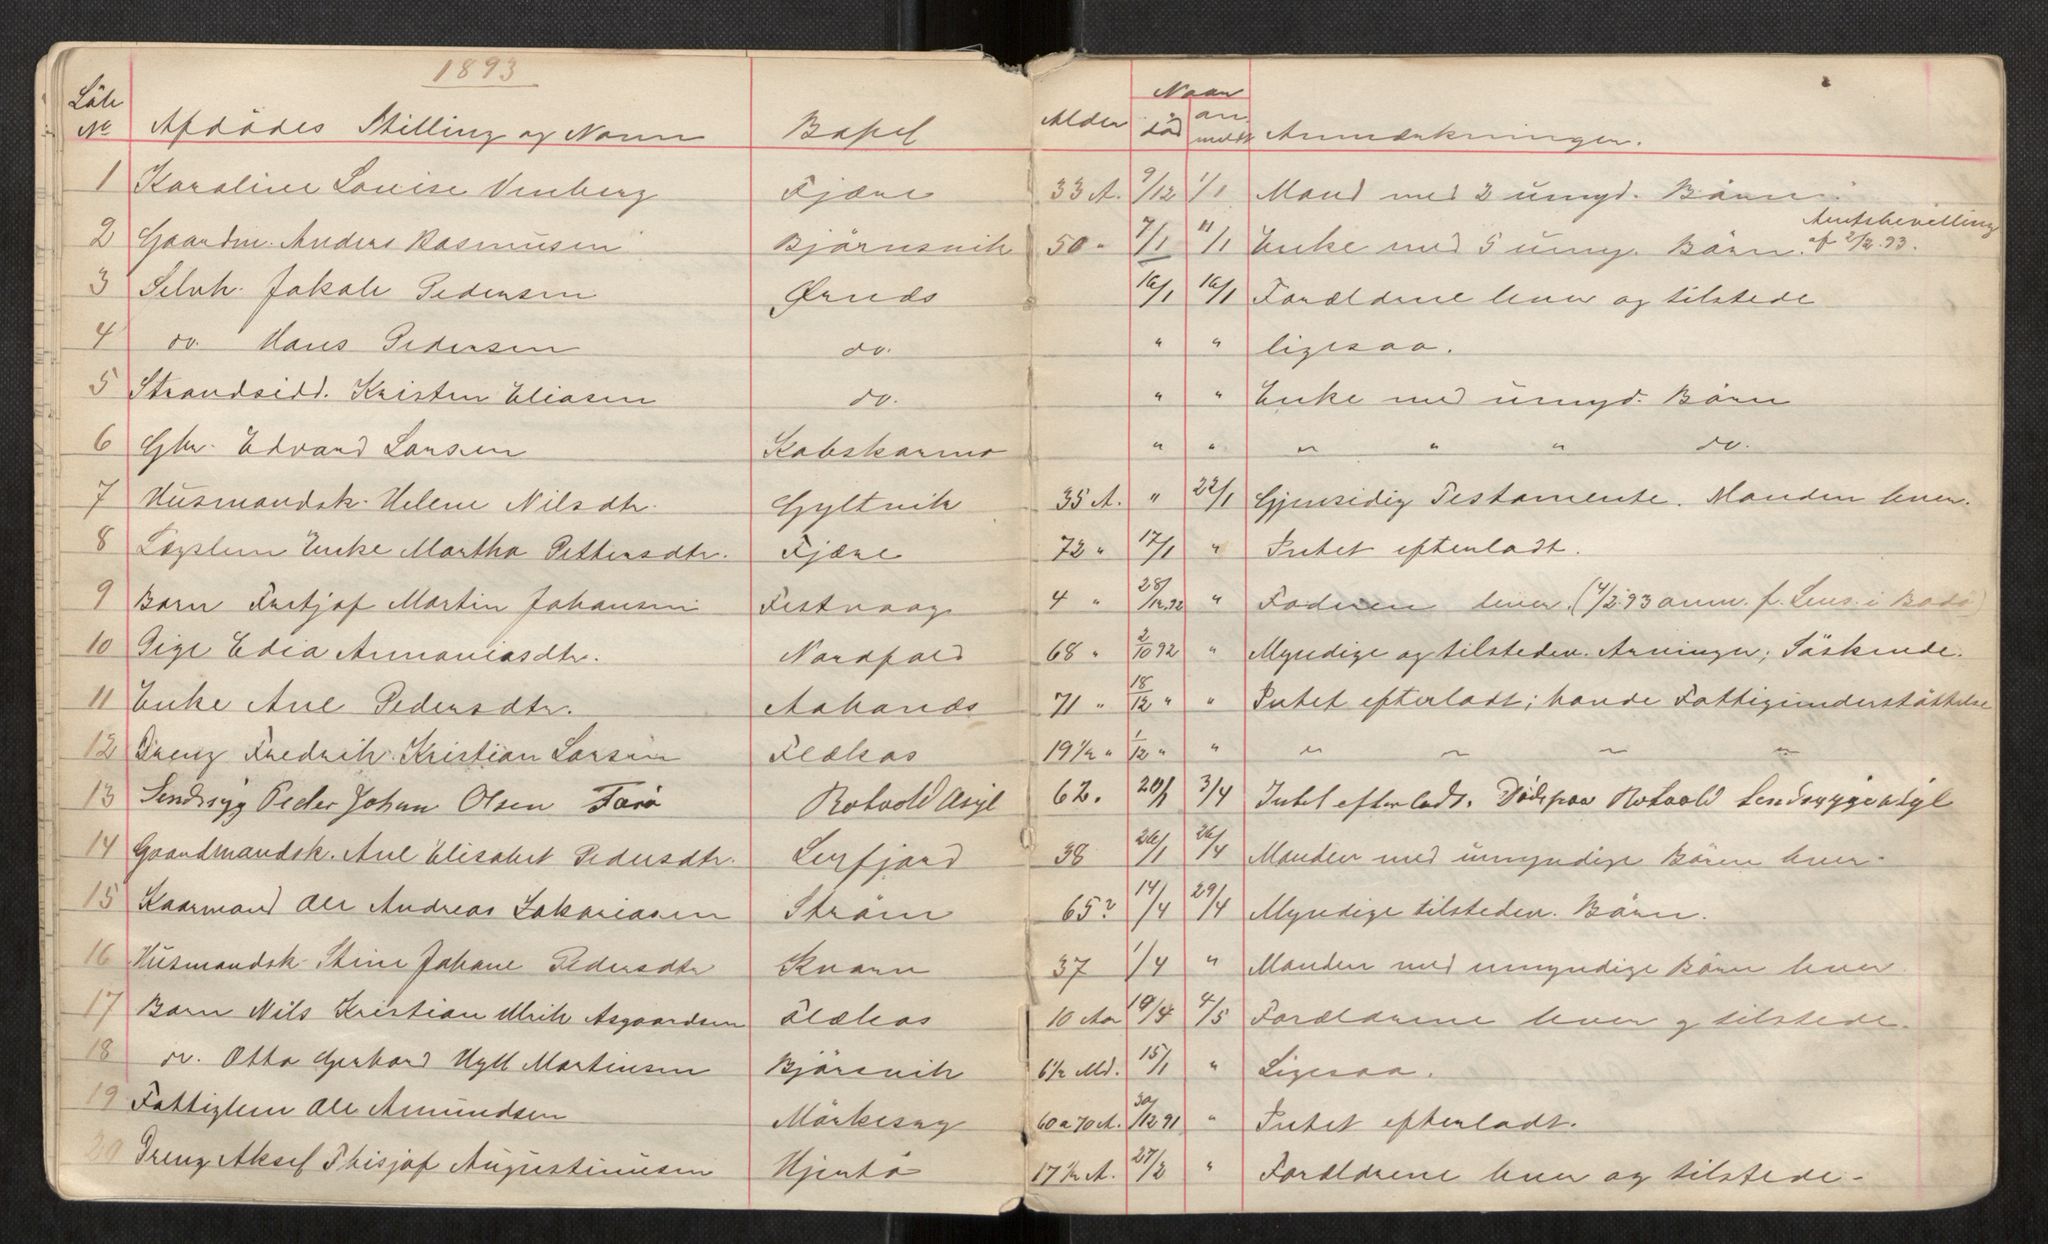 1893
Löb No Afdödes Stilling og Navn Bopel Alder Naar död anmeldt Anmærkninger.
1 Karoline Louise Vinberg Fjære 33 A. 9/12 1/1 Mand med 2 umynd. Börn.
2 Gaardm. Anders Rasmusen Björnsvik 50 " 7/1 11/1 Enke med 5 umy. Börn. Amtsbevilling af 2/2.93.
3 Selvh. Jakob Pedersen Örnes 16/1 16/1 Forældrene lever og tilstede
4 do. Hans Pedersen do. " " ligesaa.
5 Strandsidd. Kristen Eliasen do. " " Enke med umynd. Börn
6 Gbr. Edvard Larsen Kobskarmo " " " " " do.
7 Husmandsk. Helene Nilsdtr. Gyltvik 35 A. " 22/1 Gjensidig Testamente. Manden lever.
8 Lægslem Enke Martha Pettersdtr. Fjære 72 " 17/1 " Intet efterladt.
9 Barn Fritjof Martin Johansen Festvaag 4 " 28/12.92 " Faderen lever. (4/2.93 anm. f. Lens. i Bodö)
10 Pige Edia Annaniasdtr. Nordfold 68 " 2/10 92 " Myndige og tilstedev. Arvinger; Söskende.
11 Enke Ane Pedersdtr. Aahands 71 " 18/12 " " Intet efterladt; havde Fattigunderstöttelse
12 Dreng Fredrik Kristian Larsen Flækas 19 1/2 " 1/12 " " " " " "
13 Sindssyg Peder Johan Olsen Farö Rotvold Asyl 62. 20/1 3/4 Intet efterladt. Död paa Rotvold Sindssygeasyl
14 Gaardmandsk. Ane Elisabet Pedersdtr. Leirfjord 38 26/1 26/4 Manden med umyndige Börn lever.
15 Kaarmand Ole Andreas Sakariasen Ström 65? 14/4 29/4 Myndige tilstedev. Börn.
16 Husmandsk. Stine Johane Pedersdtr Kvarv 37 1/4 " Manden med umyndige Börn lever
17 Barn Nils Kristian Ulrik Asgaardsen Flækas 10 Aar 19/4 4/5 Forældrene lever og tilstede.
18 do. Otto Gerhard Hyll Martinsen Björsvik 6 1/2 Md. 15/1 " Ligesaa.
19 Fattiglem Ole Amundsen Mörkesvig 60 a 70 A. 30/12 91 " Intet efterladt.
20 Dreng Aksel Thisjof Augustinusen Hjertö 17 1/2 A. 27/2 " Forældrene lever og tilstede.